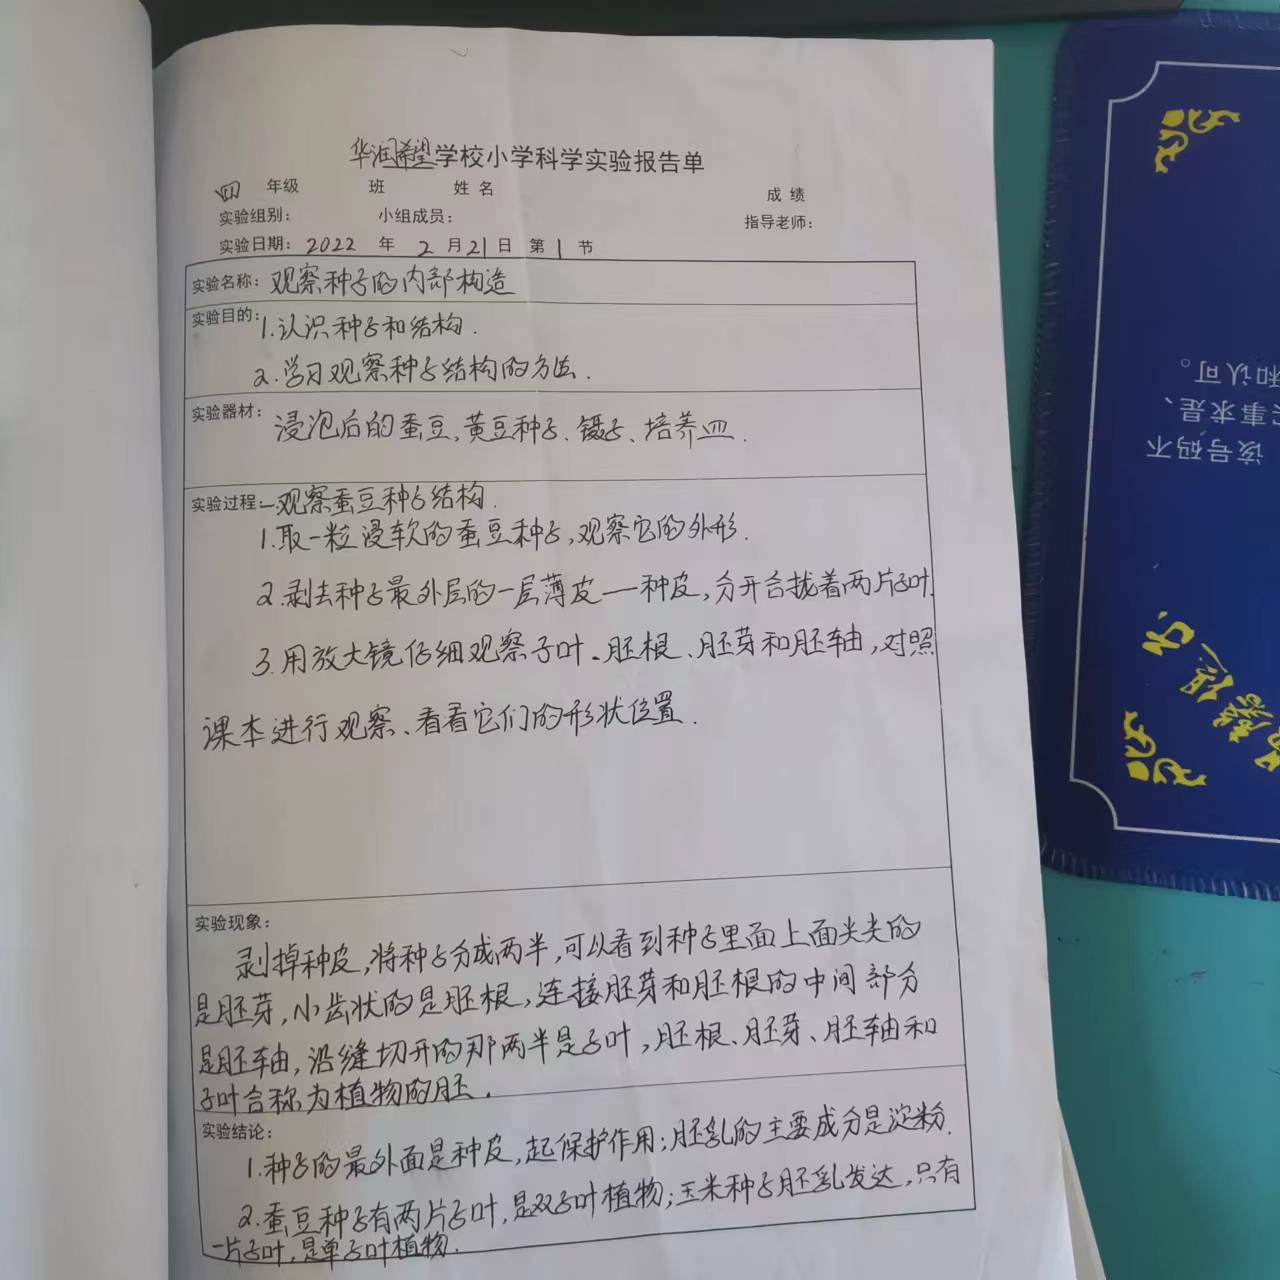 华润希望学校小学科学实验报告单
四 年级 班 姓名 成绩
实验组别: 小组成员: 指导老师:
实验日期: 2022 年 2 月 21 日 第 1 节
实验名称: 观察种子的内部构造
实验目的: 1.认识种子和结构.
2.学习观察种子结构的方法.
实验器材: 浸泡后的蚕豆,黄豆种子、镊子、培养皿.
实验过程: 一.观察蚕豆种子结构.
1.取一粒浸软的蚕豆种子,观察它的外形.
2.剥去种子最外层的一层薄皮——种皮,分开合拢着两片子叶.
3.用放大镜仔细观察子叶、胚根、胚芽和胚轴,对照
课本进行观察、看看它们的形状位置.
实验现象:
剥掉种皮,将种子分成两半,可以看到种子里面上面尖尖的
是胚芽,小齿状的是胚根,连接胚芽和胚根的中间部分
是胚轴,沿缝切开的那两半是子叶,胚根、胚芽、胚轴和
子叶合称为植物的胚.
实验结论:
1.种子的最外面是种皮,起保护作用;胚乳的主要成分是淀粉.
2.蚕豆种子有两片子叶,是双子叶植物;玉米种子胚乳发达,只有
一片子叶,是单子叶植物.
和认可。
事求是、
该号码不